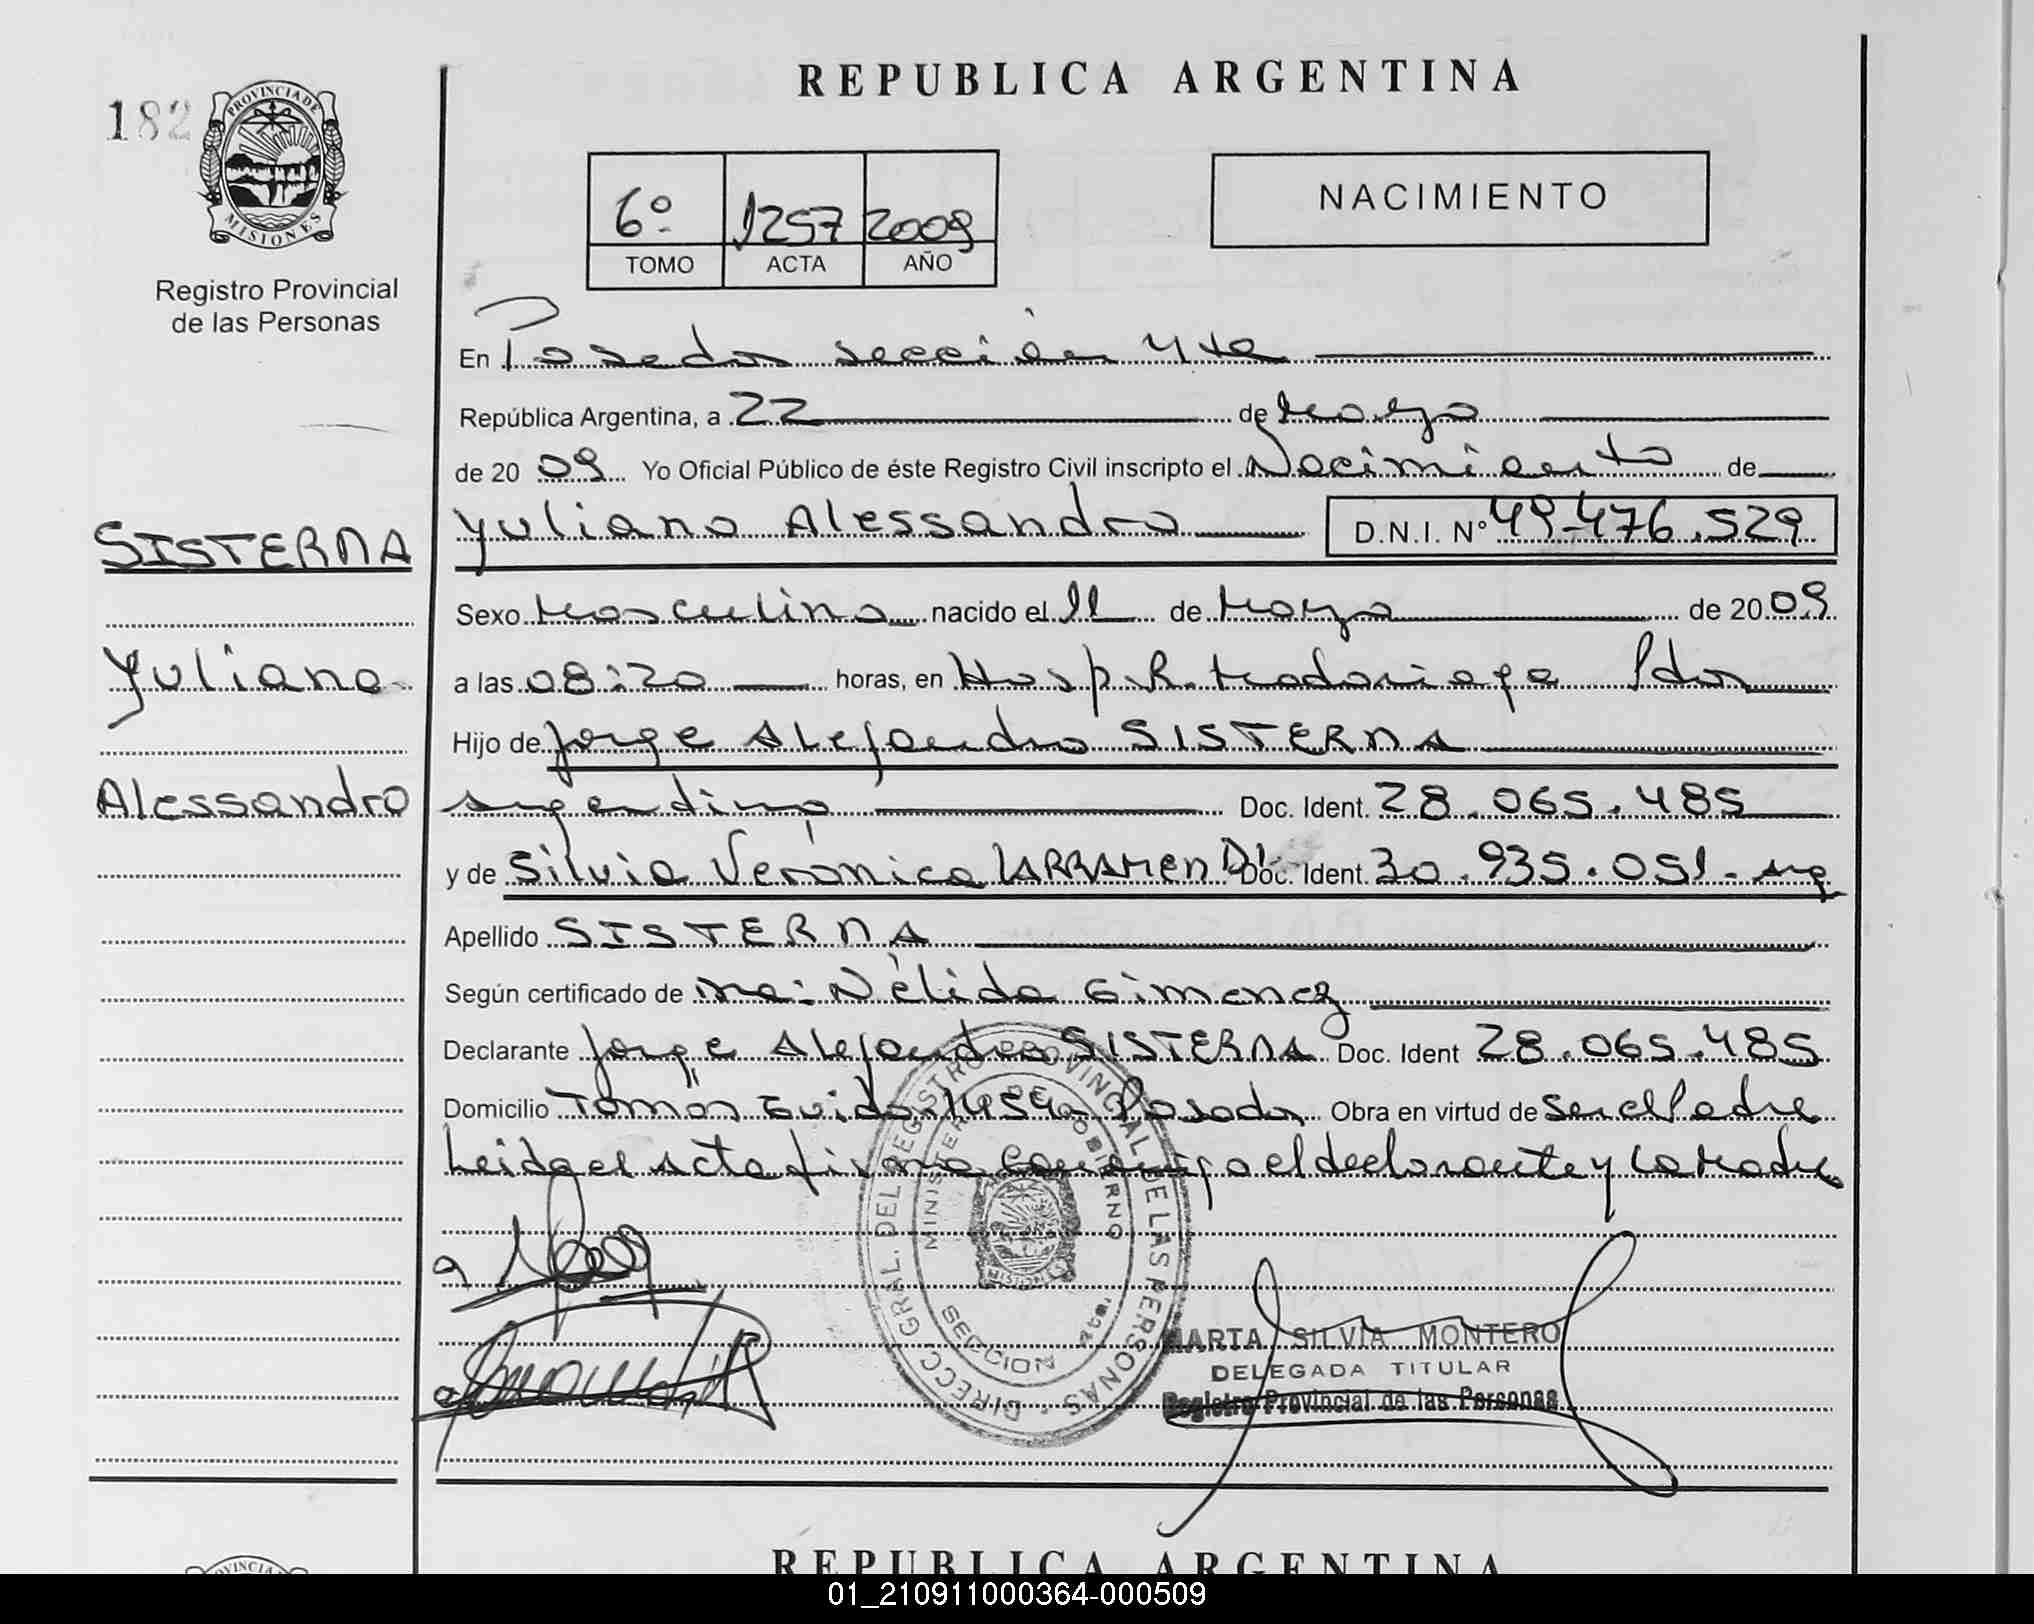 REPUBLICA ARGENTINA
182
PROVINCIA DE
MISIONES
Registro Provincial
de las Personas
6º 1257 2009
TOMO ACTA AÑO
NACIMIENTO
En Posadas sección 4ta
República Argentina, a 22 de Mayo
de 2009 Yo Oficial Público de éste Registro Civil inscripto el Nacimiento de
SISTERNA
Yuliano
Alessandro
Yuliano Alessandro D.N.I. Nº 49.476.529
Sexo Masculino nacido el 11 de Mayo de 2009
a las 08:20 horas, en Hosp. R. Madariaga Pdas
Hijo de Jorge Alejandro SISTERNA
argentino Doc. Ident. 28.065.485
y de Silvia Verónica LARRAMENDI Doc. Ident. 30.935.051 - arg
Apellido SISTERNA
Según certificado de Nélida Gimenez
Declarante Jorge Alejandro SISTERNA Doc. Ident 28.065.485
Domicilio Tomás Guido Posadas Obra en virtud de ser el Padre
Leida el acta firma conmigo el declarante y la Madre
DIRECC GRAL. DEL REGISTRO PROVINCIAL DE LAS PERSONAS
MINISTERIO DE GOBIERNO
MISIONES
SECCION
MARTA SILVIA MONTERO
DELEGADA TITULAR
Registro Provincial de las Personas
REPUBLICA ARGENTINA
01_210911000364-000509